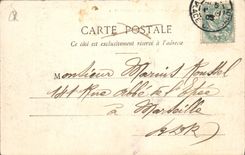 CARTE POSTALE
Ce côté est exclusivement réservé à l'adresse
Monsieur Marius Roussel
141 Rue Abbé de l'Epée
à Marseille